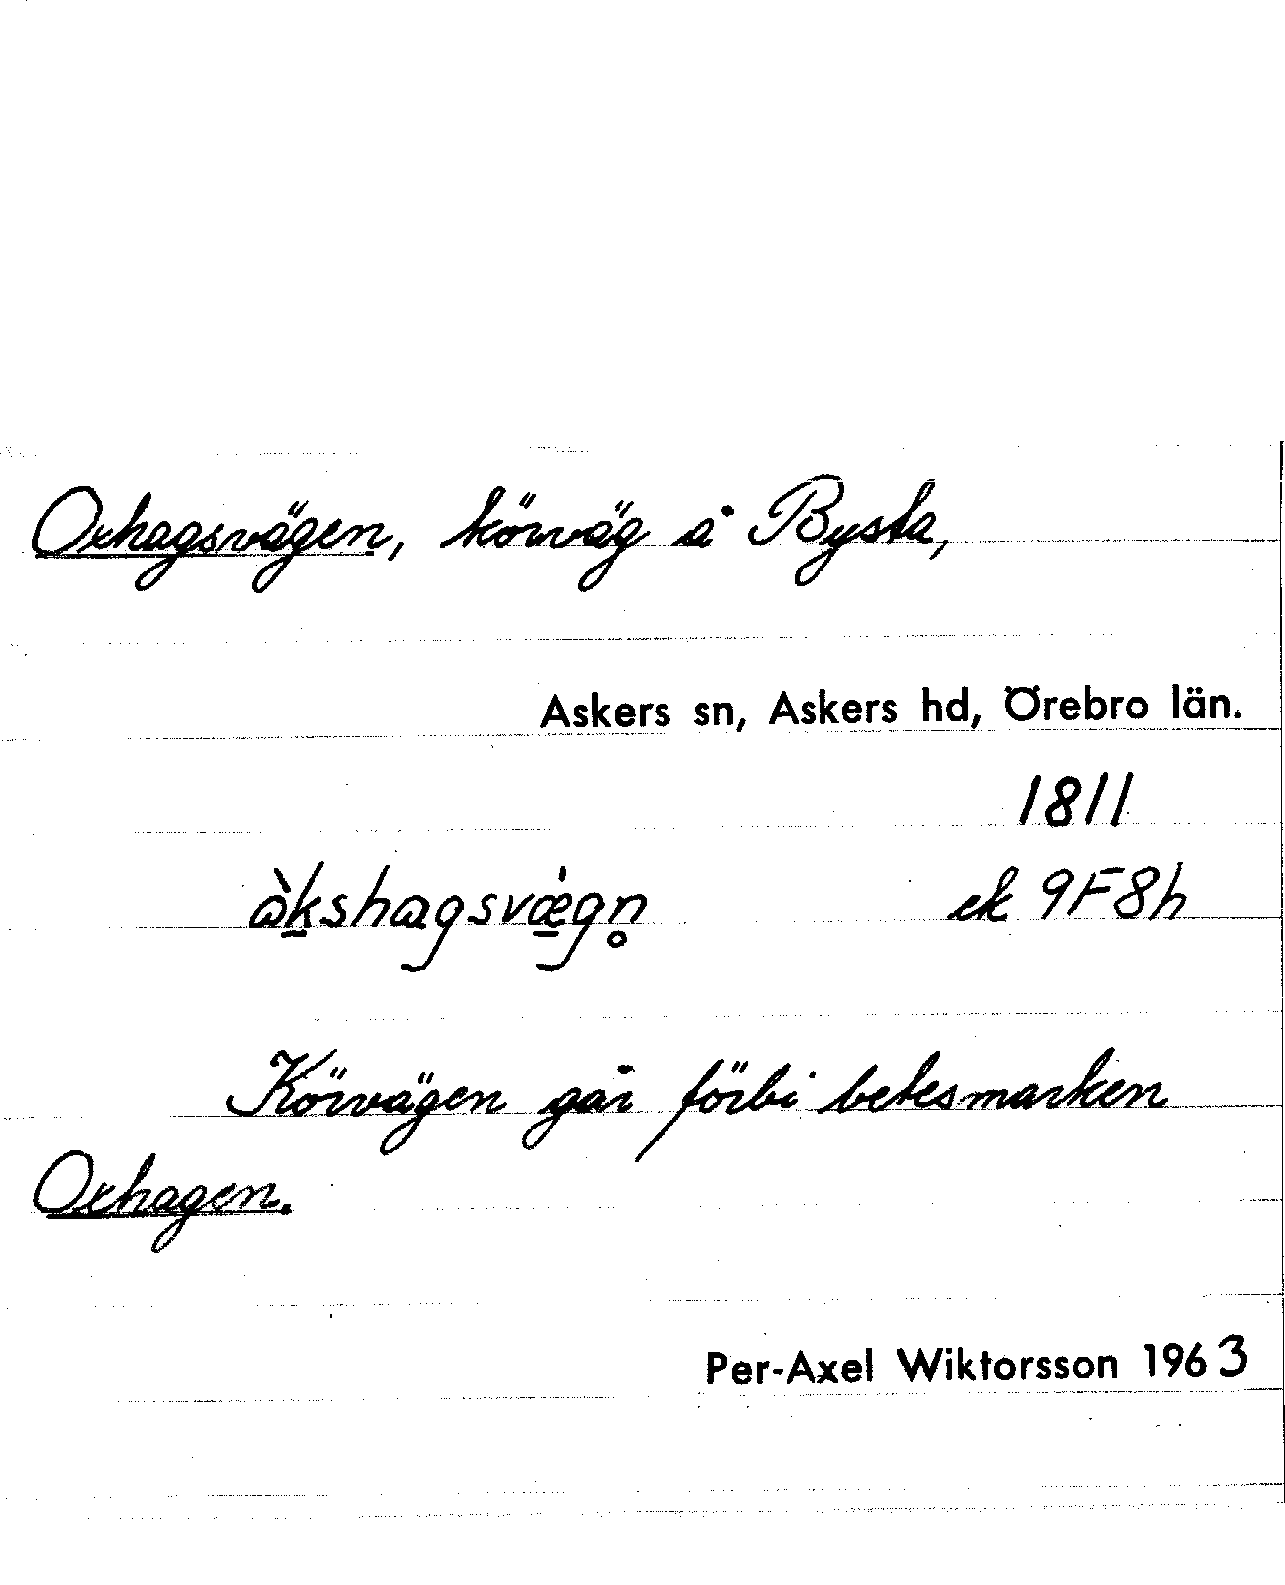 Oxhagsvägen, körväg å Bysta,
Askers sn, Askers hd, Örebro län.
1811
àk̲shagsvæ̲̍gn̥ ek 9F8h
Körvägen går förbi betesmarken
Oxhagen.
Per-Axel Wiktorsson 1963